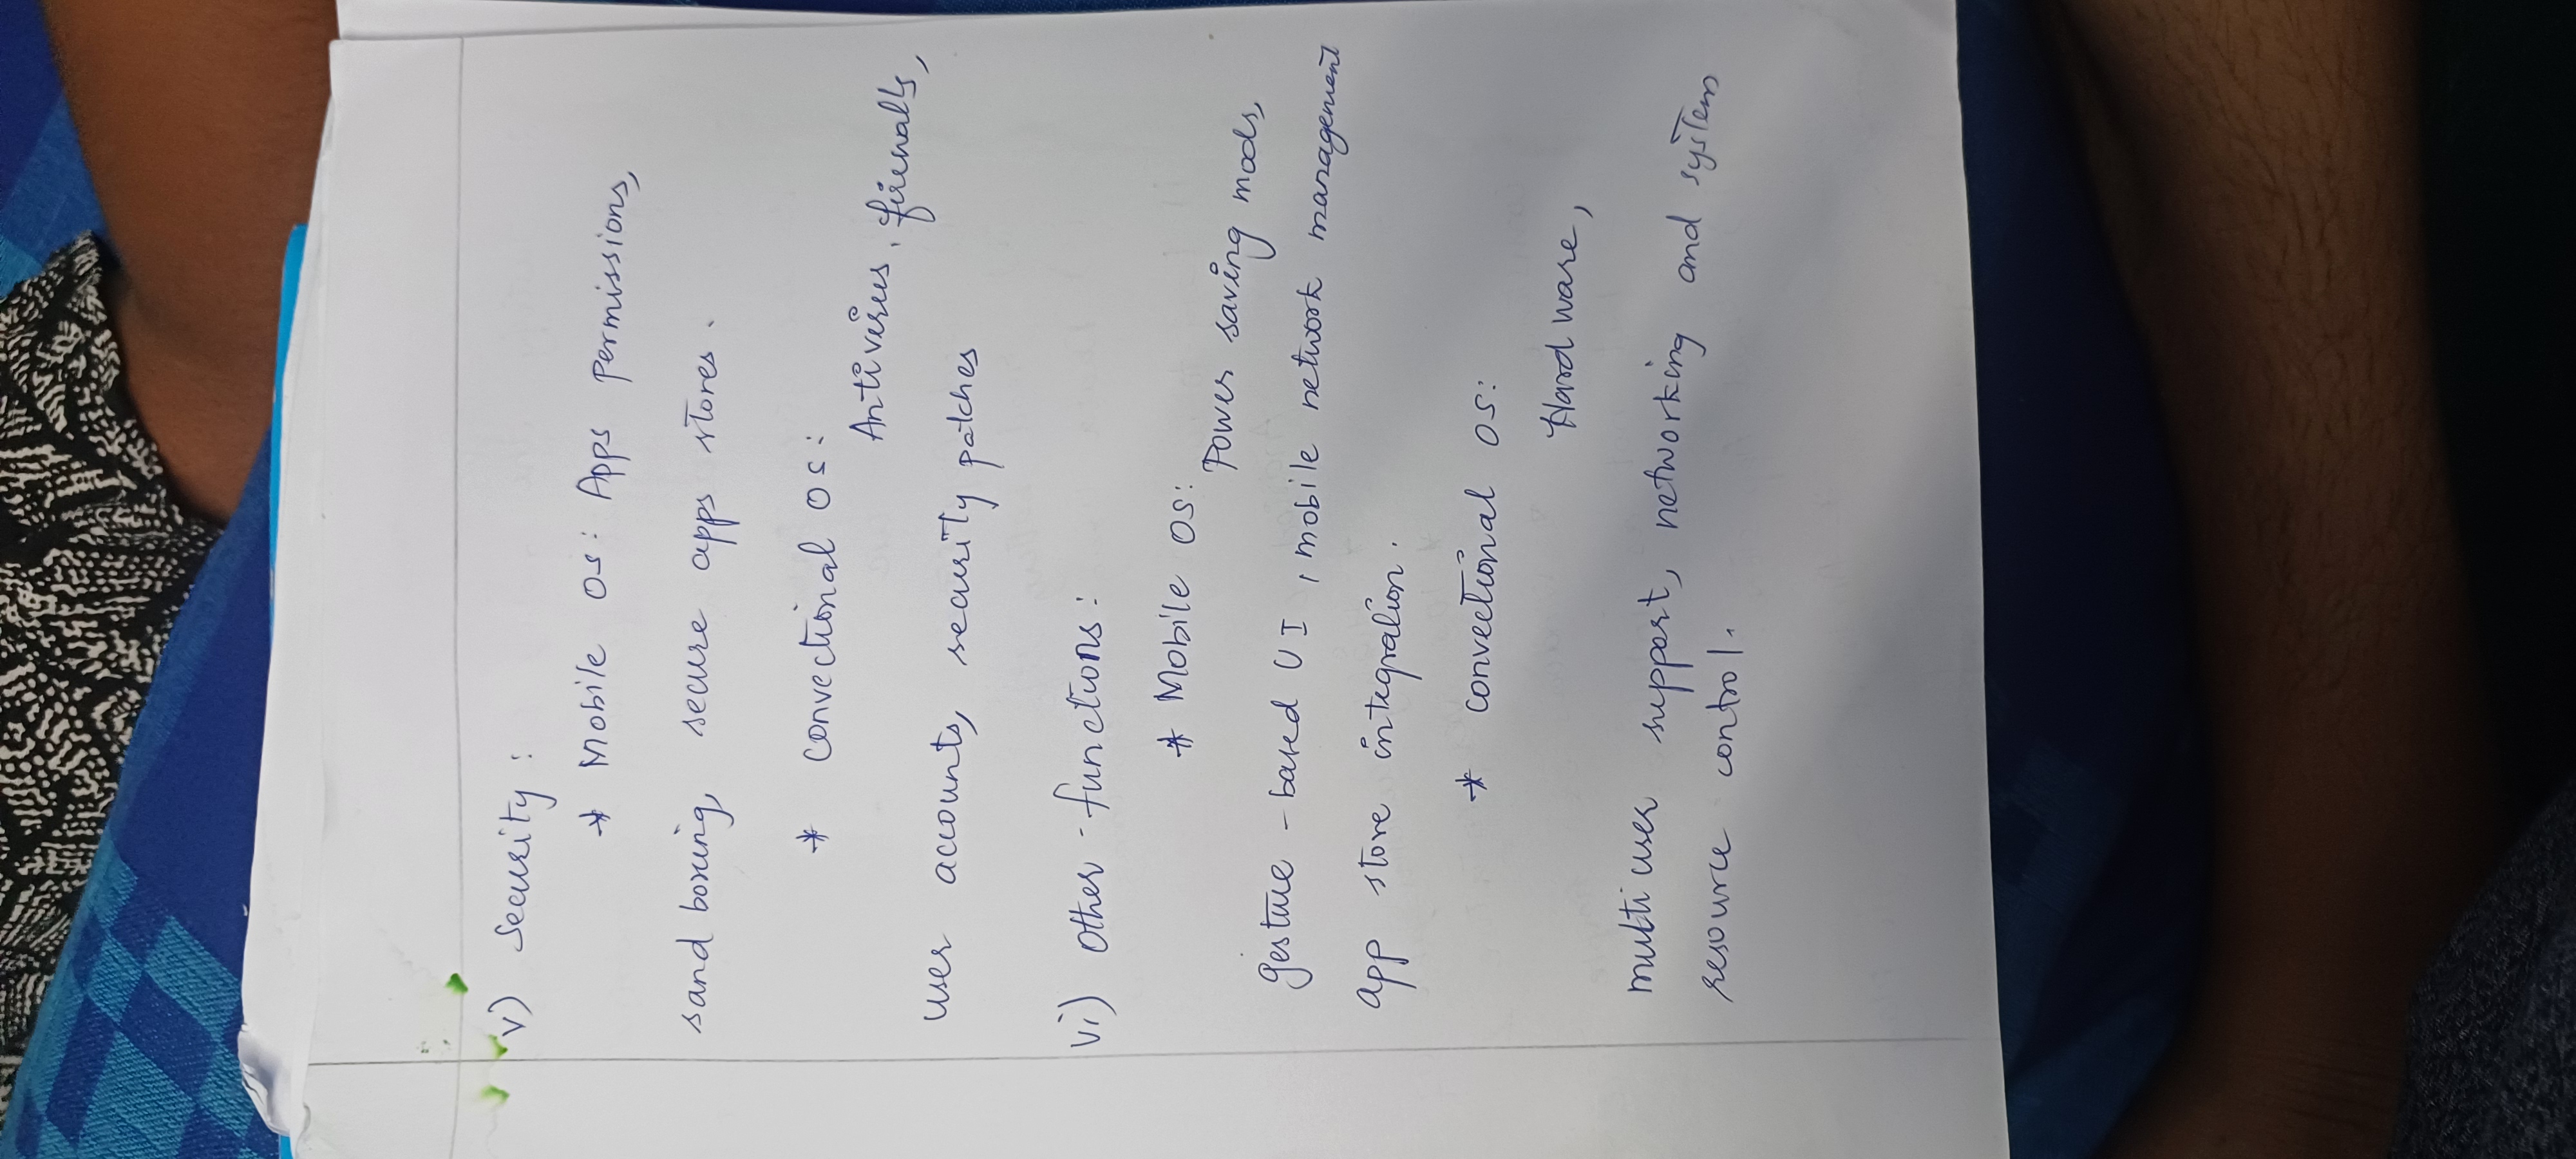 v) Security :
* Mobile OS: Apps permissions,
sand boxing, secure apps stores.
* convectional OS:
Antivirus, firewalls,
user accounts, security patches
vi) Other functions:
* Mobile OS:
Power saving mods,
gesture-based UI, mobile network management
app store integration.
* convectional OS:
Hard ware,
multi user support, networking and system
resource control.